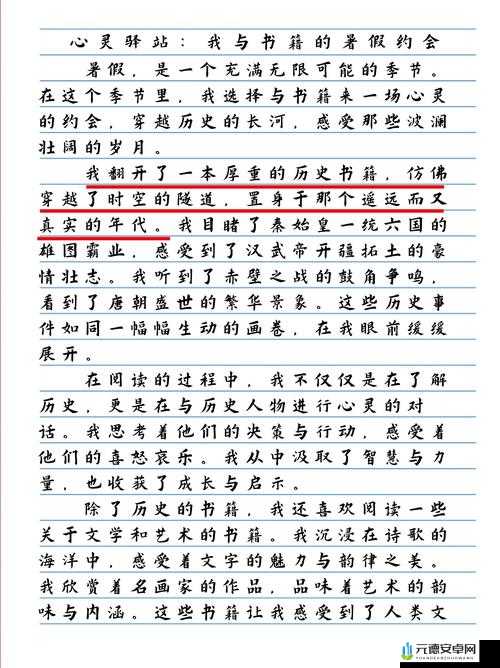 心灵驿站：我与书籍的暑假约会
暑假，是一个充满无限可能的季节。
在这个季节里，我选择与书籍来一场心灵
的约会，穿越历史的长河，感受那些波澜
壮阔的岁月。
我翻开了一本厚重的历史书籍，仿佛
穿越了时空的隧道，置身于那个遥远而又
真实的年代。我目睹了秦始皇一统六国的
雄图霸业，感受到了汉武帝开疆拓土的豪
情壮志。我听到了赤壁之战的鼓角争鸣，
看到了唐朝盛世的繁华景象。这些历史事
件如同一幅幅生动的画卷，在我眼前缓缓
展开。
在阅读的过程中，我不仅仅是在了解
历史，更是在与历史人物进行心灵的对
话。我思考着他们的决策与行动，感受着
他们的喜怒哀乐。我从中汲取了智慧与力
量，也收获了成长与启示。
除了历史的书籍，我还喜欢阅读一些
关于文学和艺术的书籍。我沉浸在诗歌的
海洋中，感受着文字的魅力与韵律之美。
我欣赏着名画家的作品，品味着艺术的韵
味与内涵。这些书籍让我感受到了人类文
元德安卓网